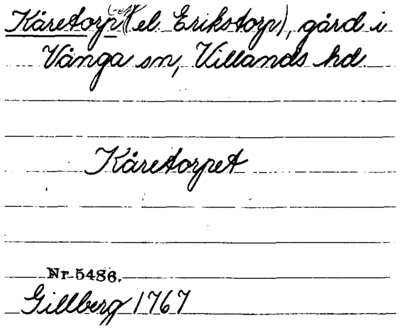 Käretorp (el. Erikstorp), gård i
Vånga sn, Villands hd
Käretorpet
Nr 5486.
Gillberg 1767